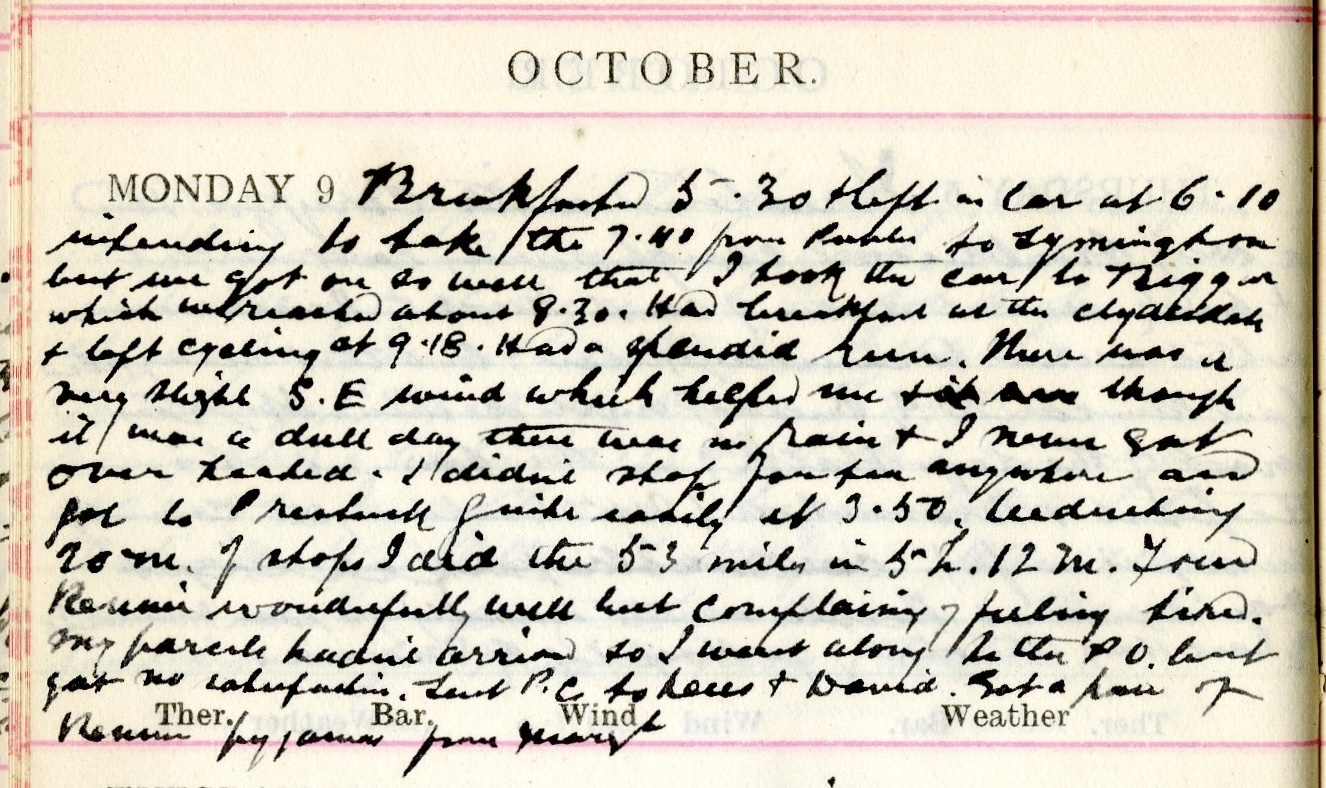 OCTOBER.
MONDAY 9 Breakfasted 5.30 & left in car at 6.10
intending to take the 7.40 from Peebles to Symington
but we got on so well that I took the car to Biggar
which we reached about 8.30. Had breakfast at the Clydesdale
& left cycling at 9.18. Had a splendid run. There was a
very slight S.E wind which helped me & though
it was a dull day there was no rain & I never got
over heated. I didn't stop for tea anywhere and
got to Prestwick quite easily at 3.50. Deducting
20 m. of stops I did the 53 miles in 5 h. 12 m. Found
Rennie wonderfully well but complaining of feeling tired.
My parcels hadn't arrived so I went along to the P O. but
got no satisfaction. Sent P.C. to & David. Got a pair of
Ther. Bar. Wind Weather
Rennie pyjamas from Margt